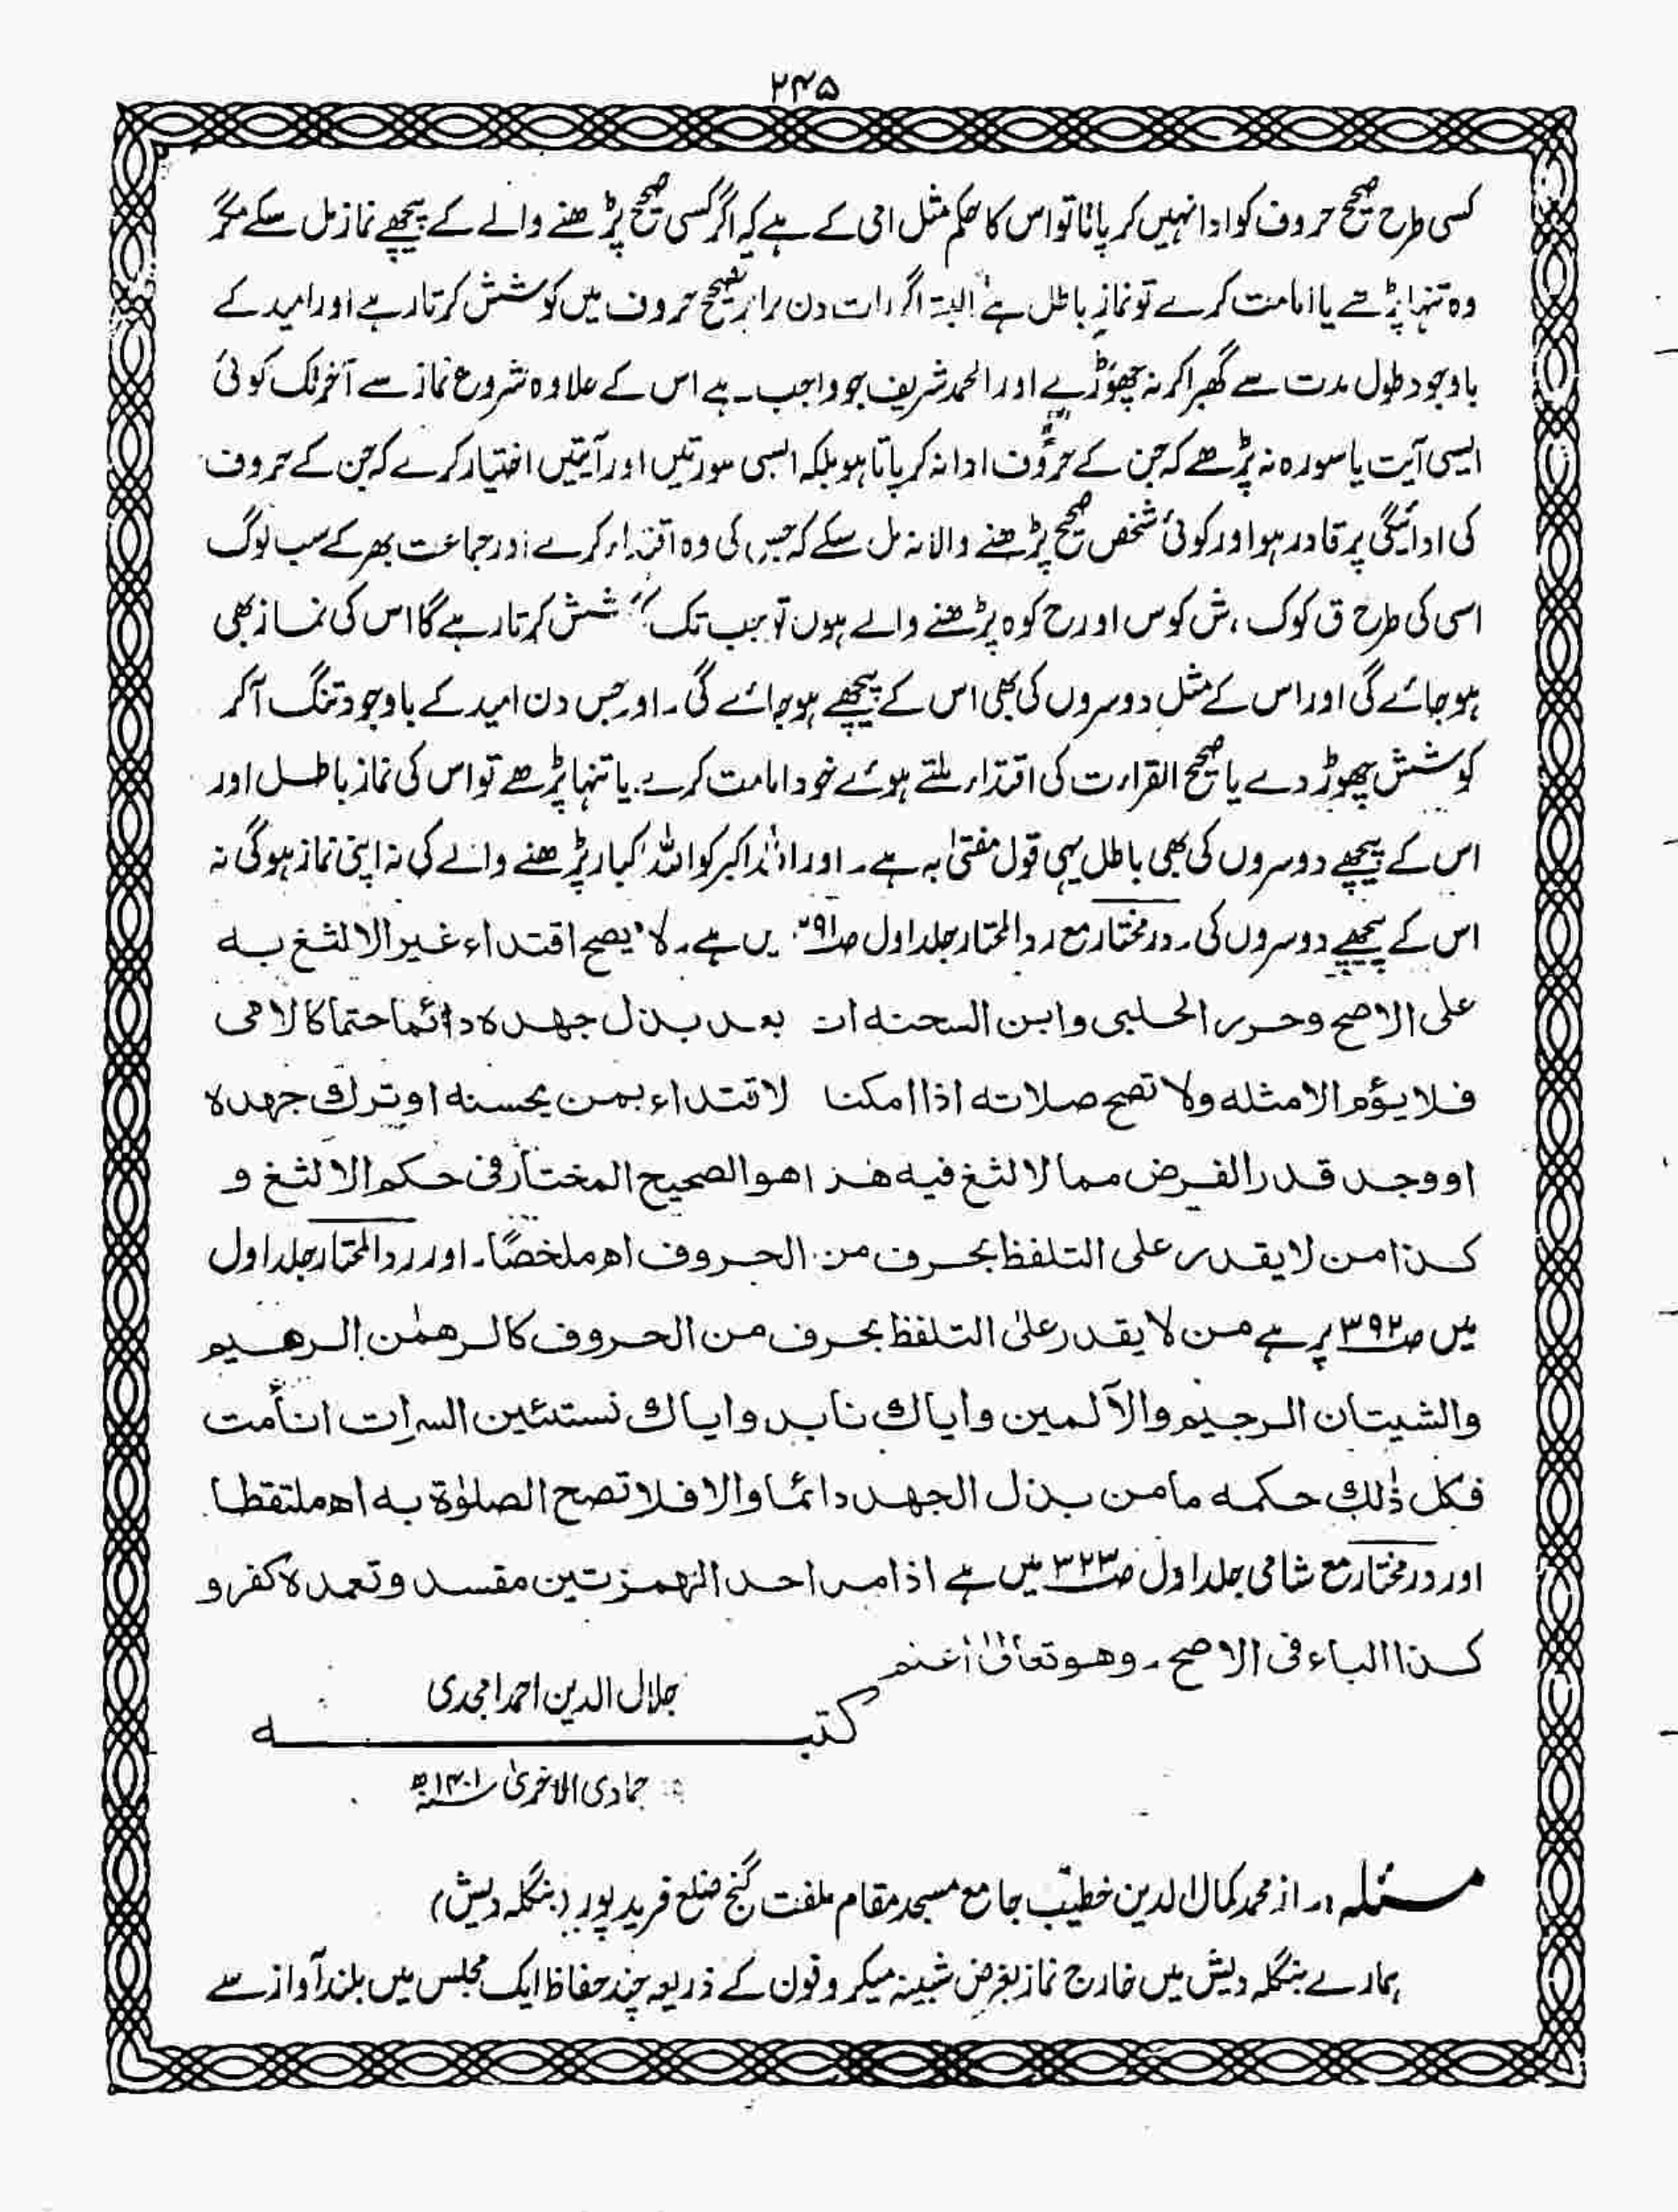 ۲۴۵
کسی طرح صحیح حروف کو ادا نہیں کر پاتا تو اس کا حکم مثل امی کے ہے کہ اگر کسی صحیح پڑھنے والے کے پیچھے نماز مل سکے مگر
وہ تنہا پڑھے یا امامت کرے تو نماز باطل ہے البتہ اگر رات دن برابر تصحیح حروف میں کوشش کرتا رہے اور امید کے
باوجود طول مدت سے گھبرا کر نہ چھوڑے اور الحمد شریف جو واجب ہے اس کے علاوہ شروع نماز سے آخر تک کوئی
ایسی آیت یا سورہ نہ پڑھے کہ جن کے حروف ادا نہ کر پاتا ہو بلکہ ایسی سورتیں اور آیتیں اختیار کرے کہ جن کے حروف
کی ادائیگی پر قادر ہو اور کوئی شخص صحیح پڑھنے والا نہ مل سکے کہ جس کی وہ اقتداء کرے اور جماعت بھر کے سب لوگ
اسی کی طرح ق کو ک ، ش کو س اور ح کو ہ پڑھنے والے ہوں تو جب تک کوشش کرتا رہے گا اس کی نماز بھی
ہو جائے گی اور اس کے مثل دوسروں کی بھی اس کے پیچھے ہو جائے گی۔ اور جس دن امید کے باوجود تنگ آکر
کوشش چھوڑ دے یا صحیح القراءت کی اقتداء ملتے ہوئے خود امامت کرے. یا تنہا پڑھے تو اس کی نماز باطل اور
اس کے پیچھے دوسروں کی بھی باطل یہی قول مفتیٰ بہ ہے۔ اور اللہ اکبر کو اللہ اکبار پڑھنے والے کی نہ اپنی نماز ہوگی نہ
اس کے پیچھے دوسروں کی۔ درمختار مع ردالمحتار جلد اول ص ۳۹۱ میں ہے۔ لا یصح اقتداء غیر الالثغ بہ
علی الاصح وحرر الحلبی وابن الشحنه ان بعد بذل جهده دائما حتما كالامی
فلا یؤم الا مثله ولا تصح صلاته اذا امکنا لاقتداء بمن یحسنه او ترك جهده
او وجد قدر الفرض مما لا لثغ فیه هذا هو الصحیح المختار فی حکم الالثغ و
کذا من لا یقدر علی التلفظ بحرف من الحروف اھ ملخصًا۔ اور ردالمحتار جلد اول
میں ص ۳۹۲ پر ہے من لا یقدر علی التلفظ بحرف من الحروف کالرهمٰن الرهیم
والشیتان الرجیم والآلمین وایاك نابد وایاك نستئین السرات انأمت
فکل ذٰلك حکمه مامن بذل الجهد دائما والا فلا تصح الصلوٰة به اھ ملتقطا.
اور درمختار مع شامی جلد اول ص ۳۲۳ میں ہے اذا مد احد الهمزتین مفسد وتعمده کفر و
کذا الباء فی الاصح۔ وهو تعالیٰ اعلم
جلال الدین احمد امجدی
کتبـــــــــــہ
جمادی الاخریٰ سنہ ۱۴۰۱ھ
مسئلہ :۔ از محمد کمال الدین خطیب جامع مسجد مقام ملفت گنج ضلع فرید پور (بنگلہ دیش)
ہمارے بنگلہ دیش میں خارج نماز بغرض شبینہ میکروفون کے ذریعہ چند حفاظ ایک مجلس میں بلند آواز سے